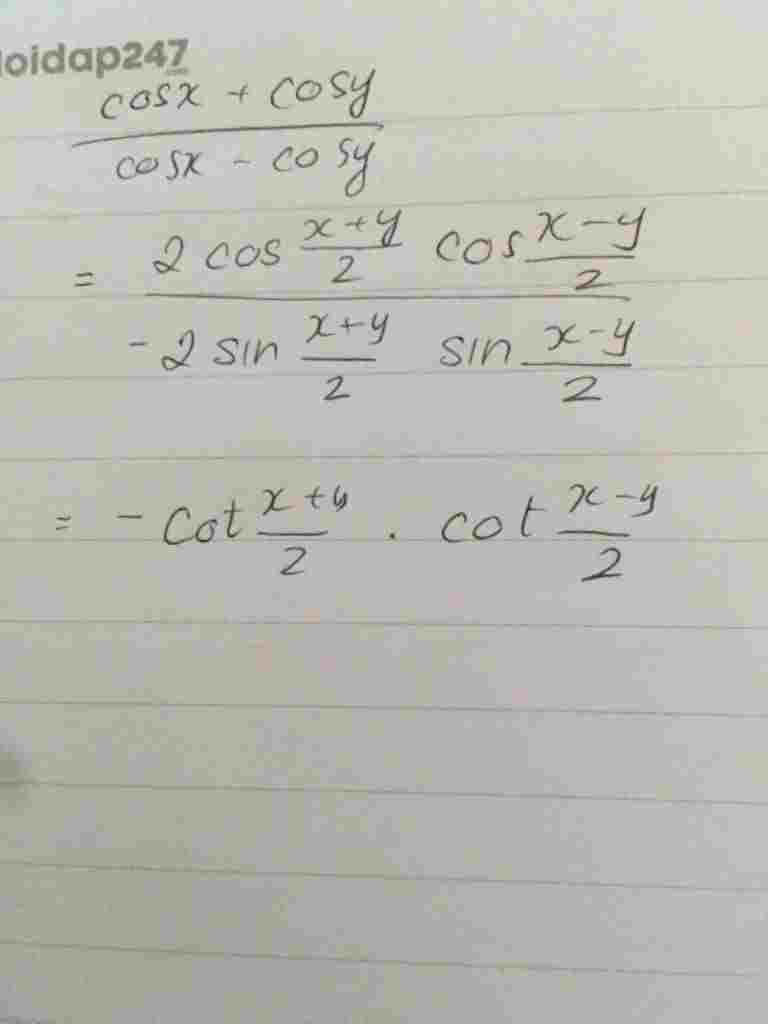 loidap247
cosx + cosy
cosx - cosy
= 2 cos x+y/2 cos x-y/2
-2 sin x+y/2 sin x-y/2
= - cot x+y/2 . cot x-y/2